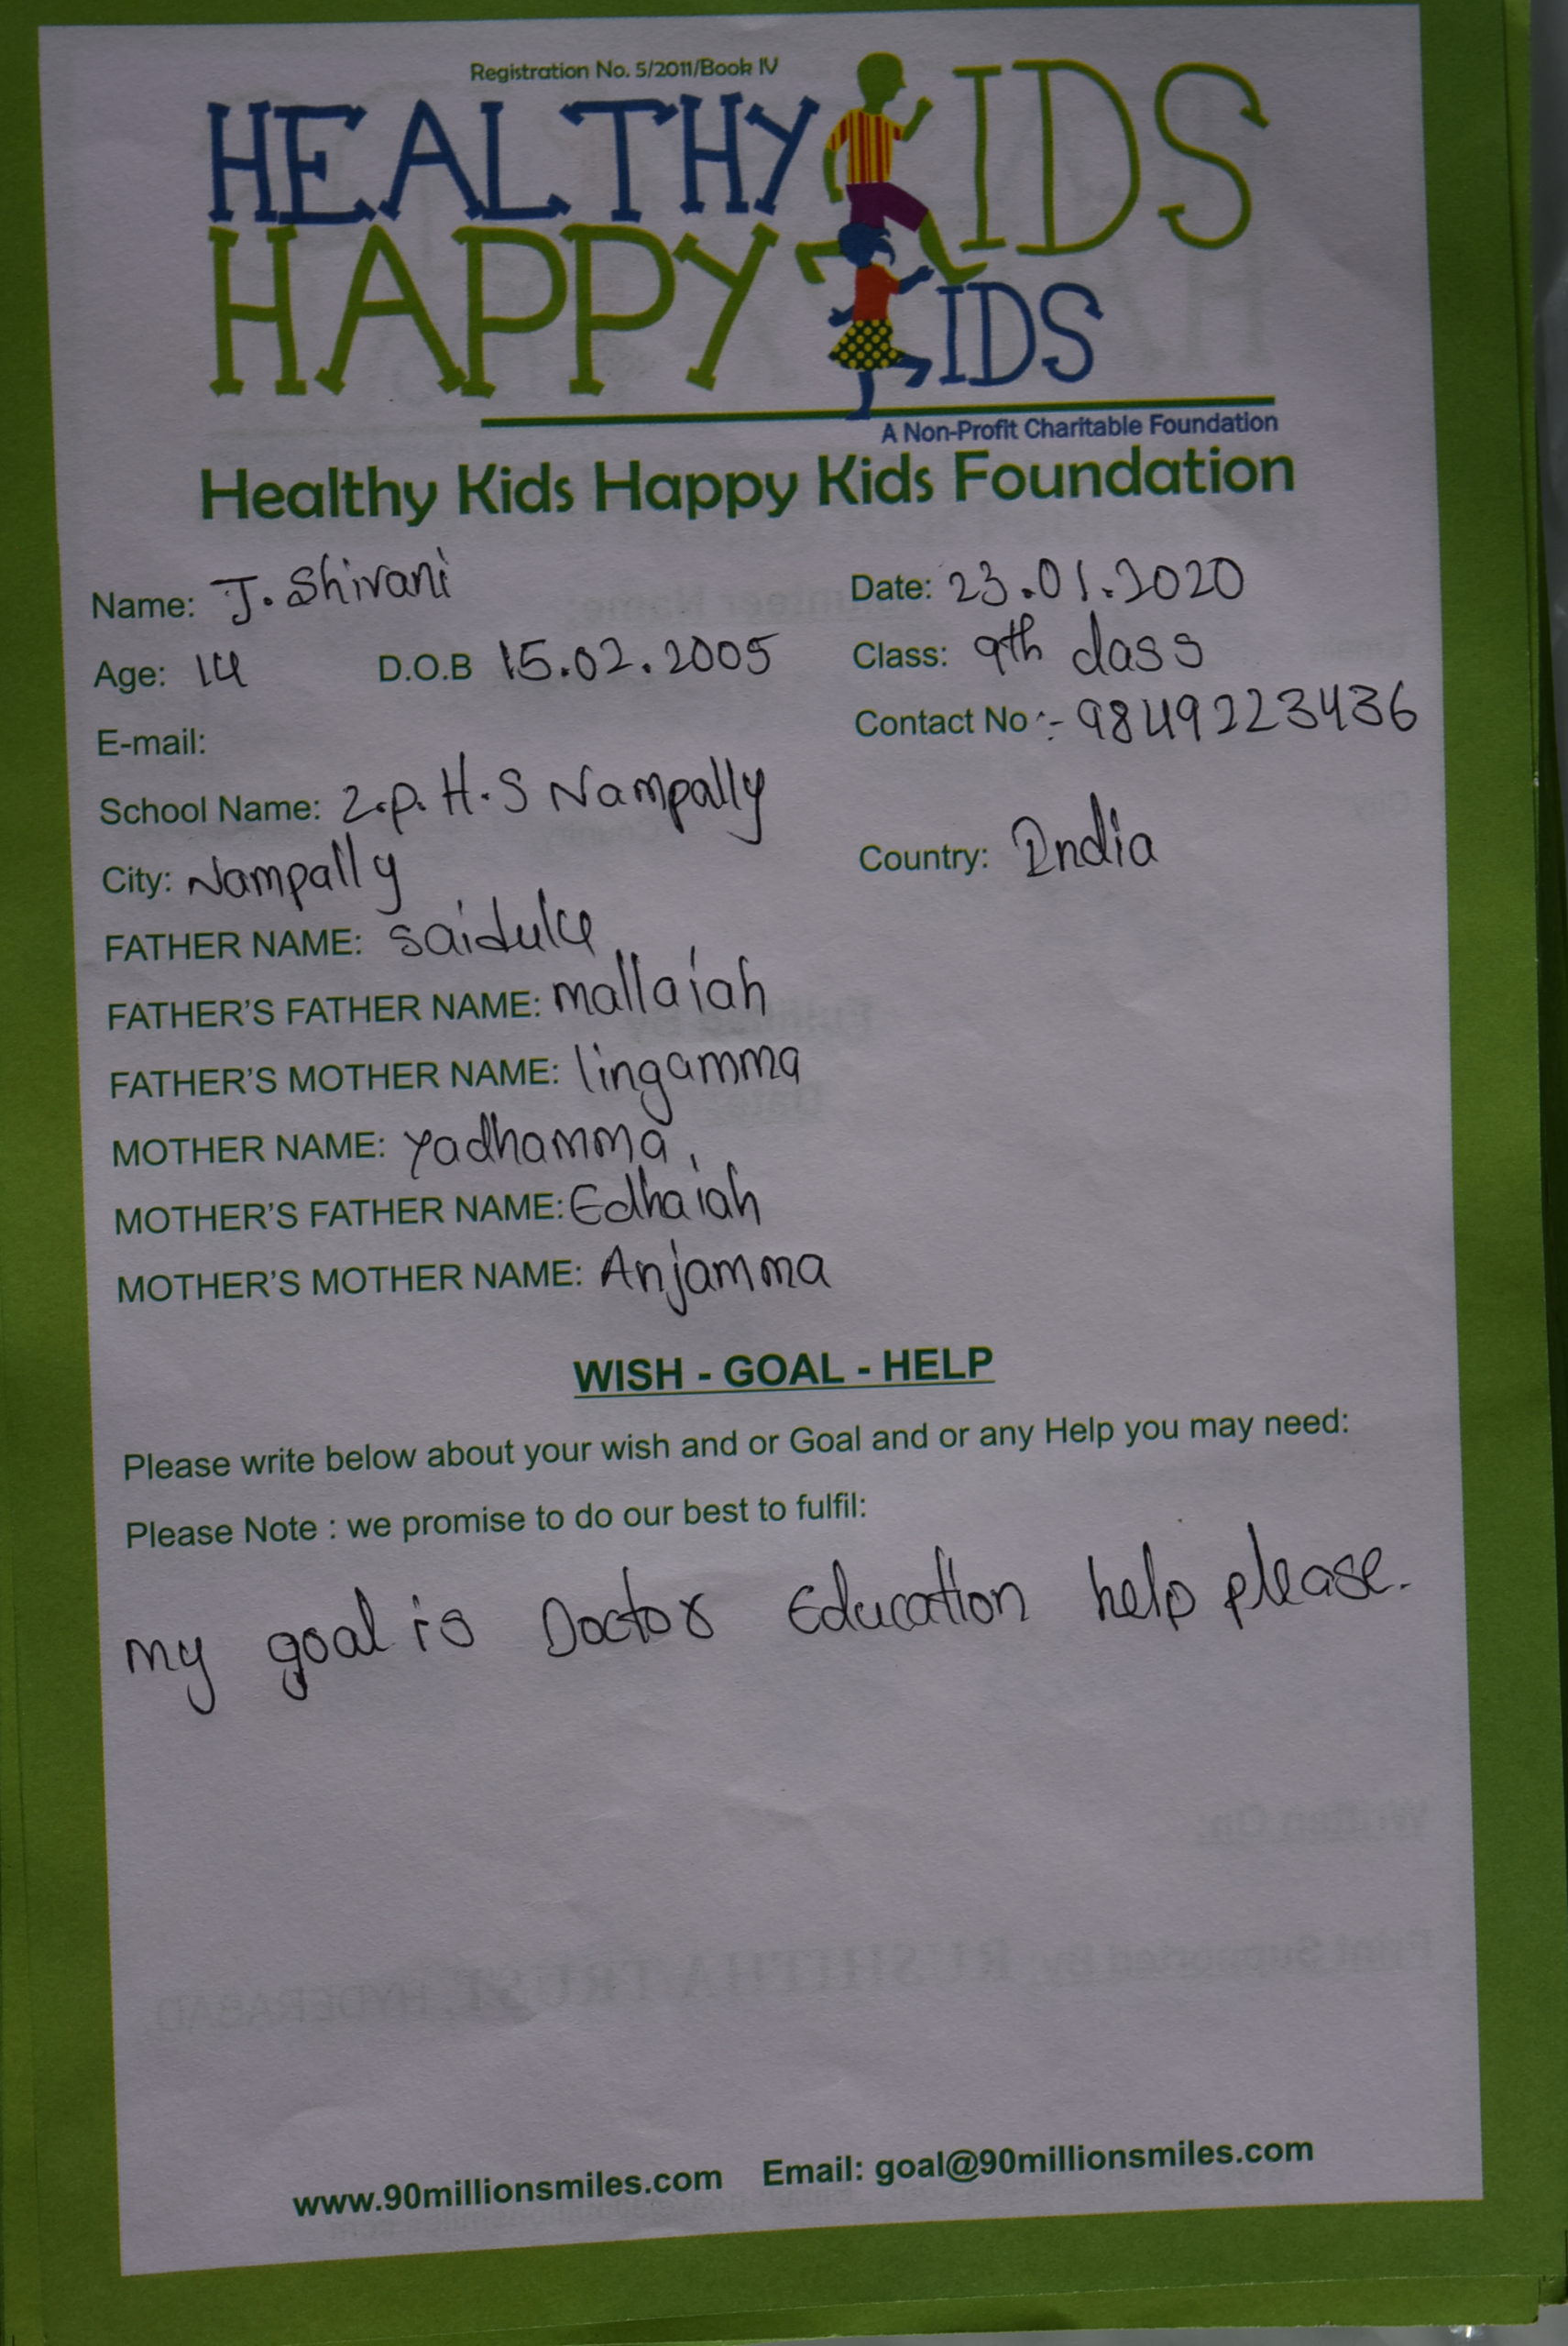 Registration No. 5/2011/Book IV
HEALTHY KIDS
HAPPY KIDS
A Non-Profit Charitable Foundation
Healthy Kids Happy Kids Foundation
Name: J. Shivani Date: 23.01.2020
Age: 14 D.O.B 15.02.2005 Class: 9th class
E-mail: Contact No :- 9849223436
School Name: Z.P. H.S Nampally
City: Nampally Country: India
FATHER NAME: saidulu
FATHER'S FATHER NAME: mallaiah
FATHER'S MOTHER NAME: lingamma
MOTHER NAME: yadhamma,
MOTHER'S FATHER NAME: Edhaiah
MOTHER'S MOTHER NAME: Anjamma
WISH - GOAL - HELP
Please write below about your wish and or Goal and or any Help you may need:
Please Note : we promise to do our best to fulfil:
my goal is Doctor Education help please.
www.90millionsmiles.com Email: goal@90millionsmiles.com